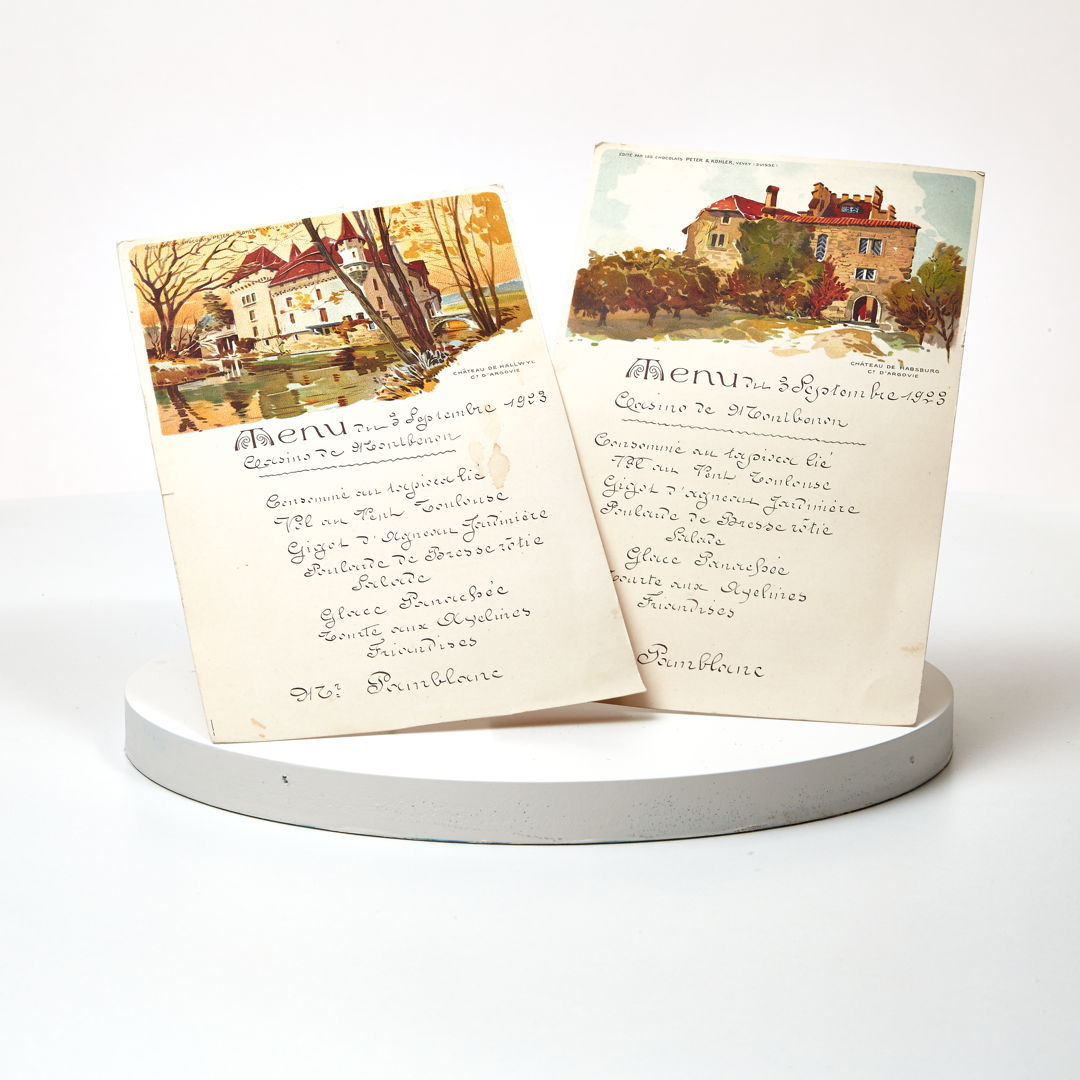 CHÂTEAU DE HALLWYL
CT D'ARGOVIE
Menu du 3 Septembre 1923
Casino de Montbenon
Consommé au tapioca lié
Vol au Vent Toulouse
Gigot d'Agneau Jardinière
Poularde de Bresse rôtie
Salade
Glace Panachée
Tourte aux Avelines
Friandises
Mr Pamblanc
EDITÉ PAR LES CHOCOLATS PETER & KOHLER, VEVEY (SUISSE)
CHÂTEAU DE HABSBURG
CT D'ARGOVIE
Menu du 3 Septembre 1923
Casino de Montbenon
Consommé au tapioca lié
Vol au Vent Toulouse
Gigot d'agneau Jardinière
Poularde de Bresse rôtie
Salade
Glace Panachée
Tourte aux Avelines
Friandises
Pamblanc